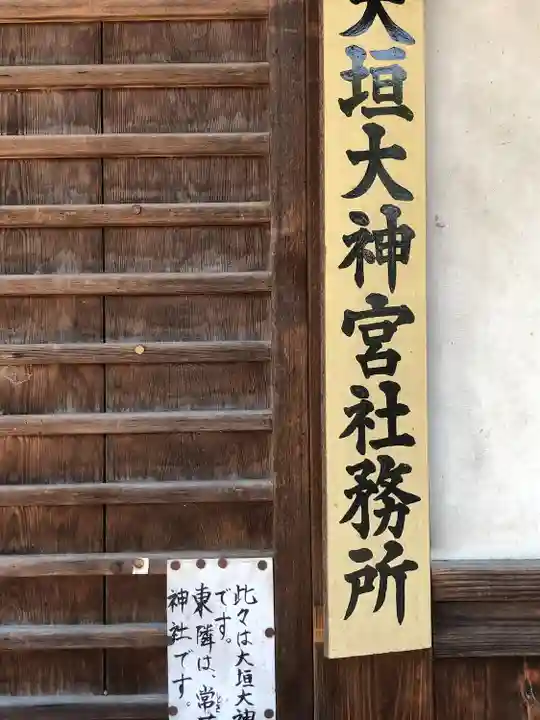 大垣大神宮社務所
此々は大垣大神
です。
東隣は、常
神社です。